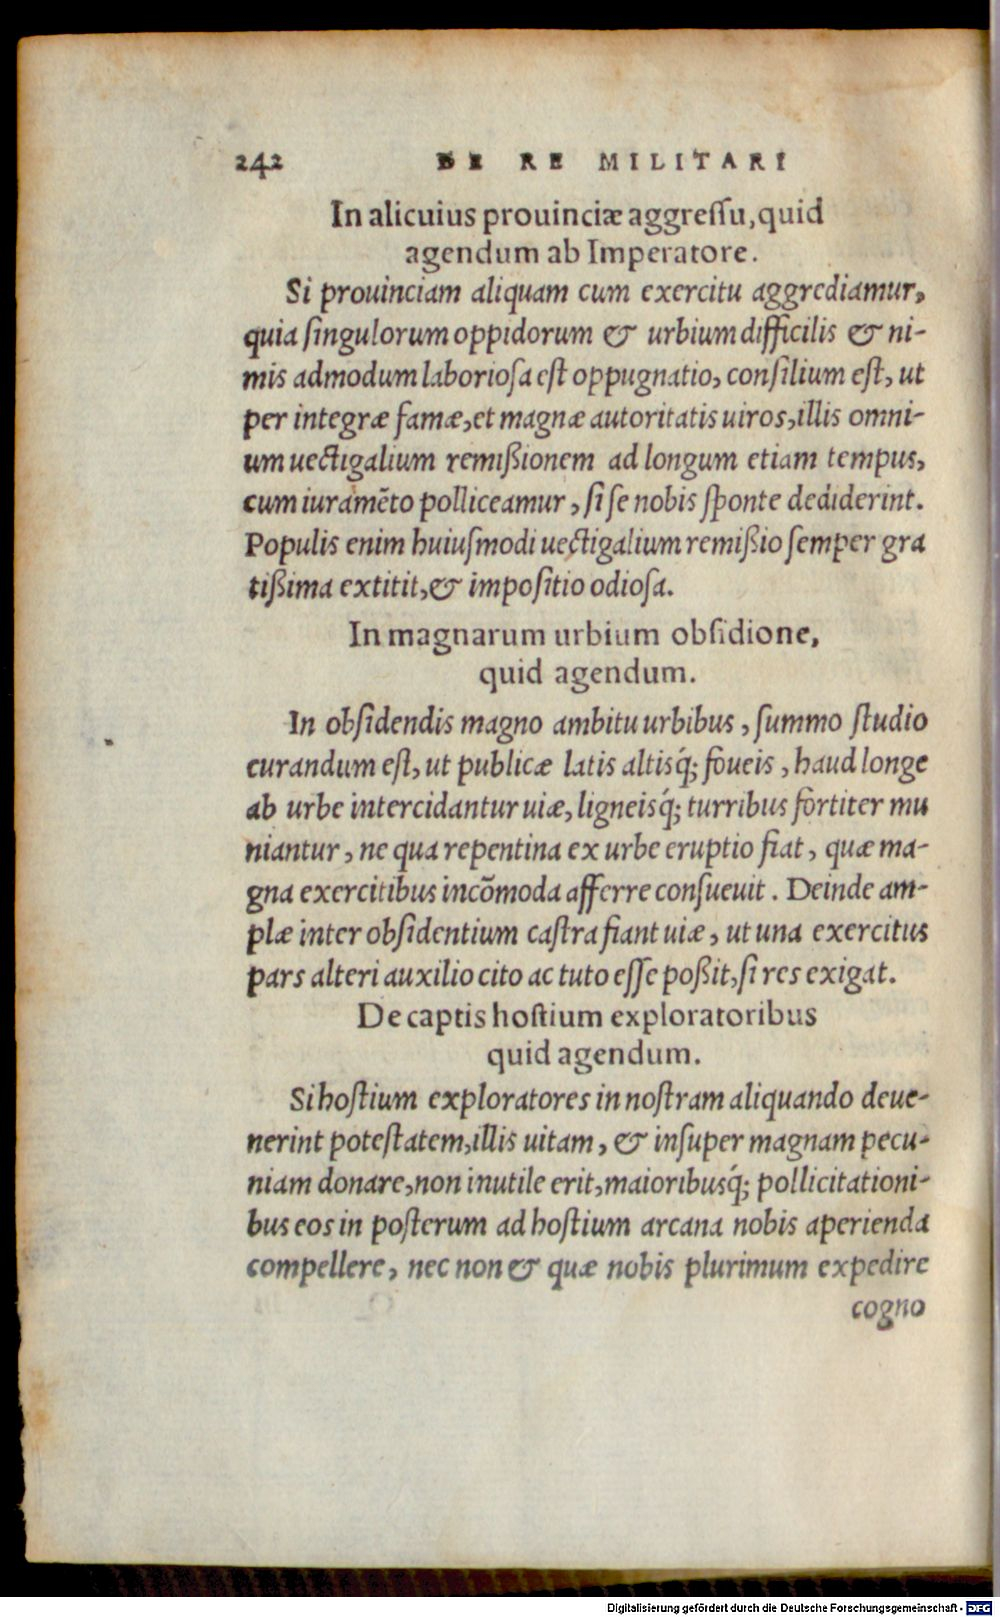 242 DE RE MILITARI
In alicuius prouinciæ aggreſſu, quid
agendum ab Imperatore.
Si prouinciam aliquam cum exercitu aggrediamur,
quia ſingulorum oppidorum & urbium difficilis & ni-
mis admodum laborioſa eſt oppugnatio, conſilium eſt, ut
per integræ famæ, et magnæ autoritatis uiros, illis omni-
um uectigalium remißionem ad longum etiam tempus,
cum iuramēto polliceamur, ſi ſe nobis ſponte dediderint.
Populis enim huiuſmodi uectigalium remißio ſemper gra
tißima extitit, & impoſitio odioſa.
In magnarum urbium obſidione,
quid agendum.
In obſidendis magno ambitu urbibus, ſummo ſtudio
curandum eſt, ut publicæ latis altisq́; foueis, haud longe
ab urbe intercidantur uiæ, ligneisq́; turribus fortiter mu
niantur, ne qua repentina ex urbe eruptio fiat, quæ ma-
gna exercitibus incōmoda afferre conſueuit. Deinde am-
plæ inter obſidentium caſtra fiant uiæ, ut una exercitus
pars alteri auxilio cito ac tuto eſſe poßit, ſi res exigat.
De captis hoſtium exploratoribus
quid agendum.
Si hoſtium exploratores in noſtram aliquando deue-
nerint poteſtatem, illis uitam, & inſuper magnam pecu-
niam donare, non inutile erit, maioribusq́; pollicitationi-
bus eos in poſterum ad hoſtium arcana nobis aperienda
compellere, nec non & quæ nobis plurimum expedire
cogno
Digitalisierung gefördert durch die Deutsche Forschungsgemeinschaft - DFG